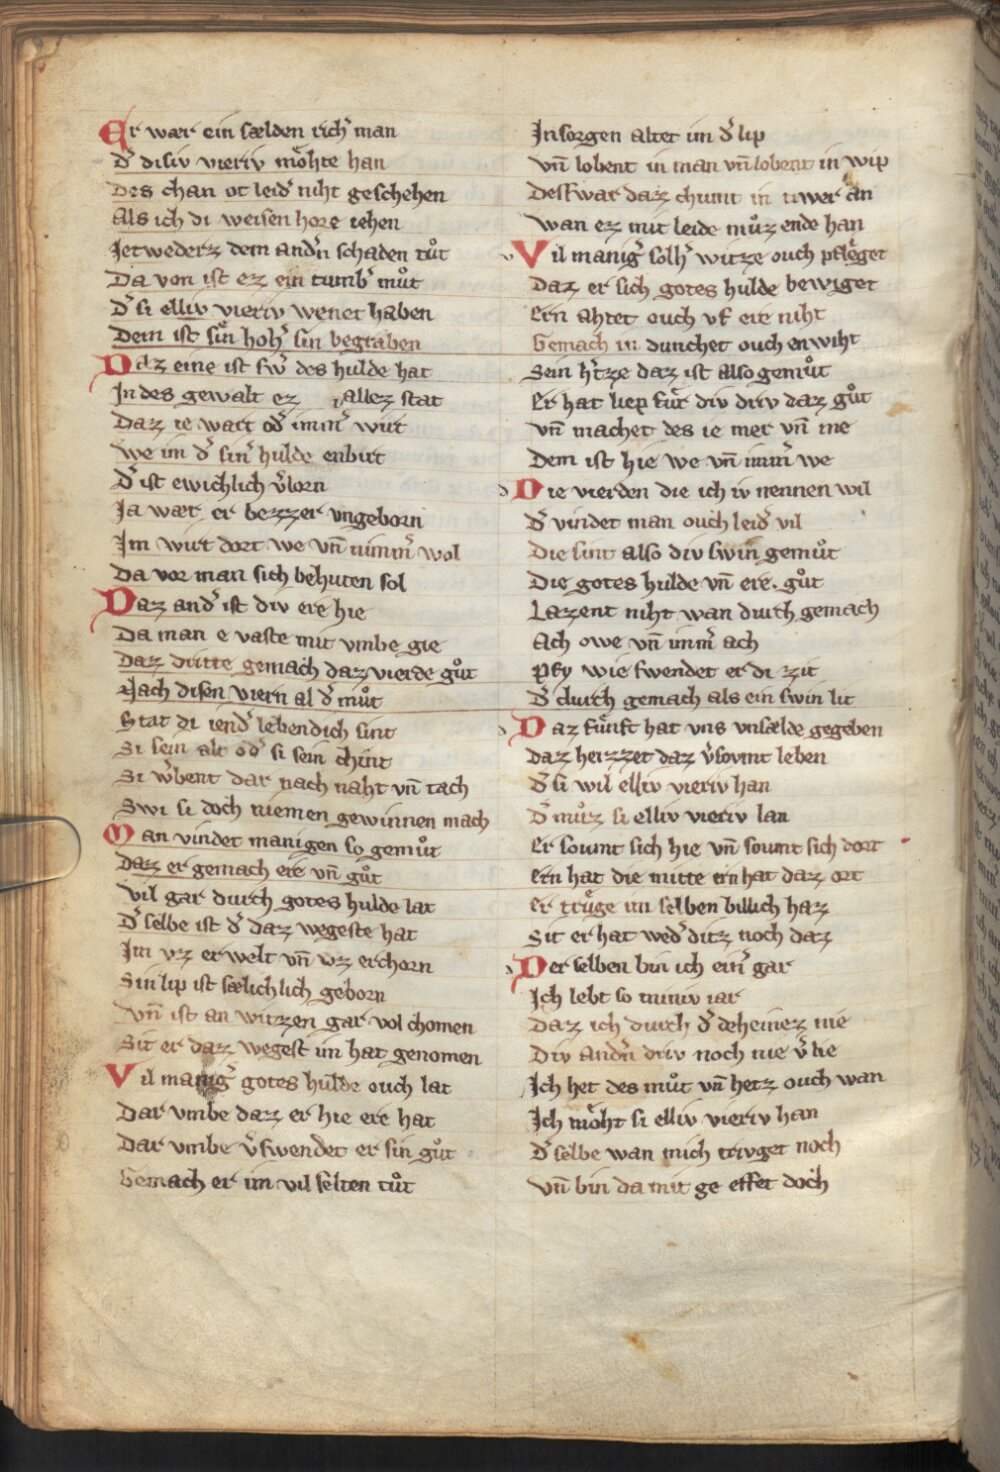 Er wær ein sælden rich᷑ man
D᷑ disiv vieriv moͤhte han
Des chan ot leid᷑ niht geschehen
Als ich di weisen hore iehen
Jetweders dem and᷑n schaden tuͦt
Da von ist ez ein tumb᷑ muͦt
D᷑ si elliv vieriv wenet haben
Dem ist sin hoh᷑ sin begraben
Daz eine ist sw᷑ des hulde hat
In des gewalt ez allez stat
Daz ie wart od᷑ imm᷑ wirt
We im d᷑ sin᷑ hulde enbirt
D᷑ ist ewichlich v᷑lorn
Ja wær er bezzer vngeborn
Im wirt dort we vn̄ nimm᷑ wol
Da vor man sich behuten sol
Daz and᷑ ist div ere hie
Da man e vaste mit vmbe gie
Daz dritte gemach daz vierde guͦt
Nach disen viern al d᷑ muͦt
Stat di iend᷑ lebendich sint
Si sein alt od᷑ si sein chint
Si w᷑bent dar nach naht vn̄ tach
Swi si doch niemen gewinnen mach
Man vindet manigen so gemuͦt
Daz er gemach ere vn̄ guͦt
Vil gar durch gotes hulde lat
D᷑ selbe ist d᷑ daz wegeste hat
Im vz erwelt vn̄ vz erchorn
Sin lip ist sælichlich geborn
Vn̄ ist an witzen gar vol chomen
Sit er daz wegest im hat genomen
Vil manig᷑ gotes hulde ouch lat
Dar vmbe daz er hie ere hat
Dar vmbe v᷑swendet er sin guͦt
Gemach er im vil selten tuͦt
In sorgen altet im d᷑ lip
Vn̄ lobent in man vn̄ lobent in wip
Deswar daz chumt in iwer an
Wan ez mit leide muͦz ende han
Vil manig᷑ solh᷑ witze ouch pfleget
Daz er sich gotes hulde bewiget
Ern ahtet ouch vf ere niht
Gemach in dunchet ouch enwiht
Sein h᷑tze daz ist also gemuͦt
Er hat liep fuͤr div driv daz guͦt
Vn̄ machet des ie mer vn̄ me
Dem ist hie we vn̄ imm᷑ we
Die vierden die ich iv nennen wil
D᷑ vindet man ouch leid᷑ vil
Die sint also div swin gemuͦt
Die gotes hulde vn̄ ere. guͦt
Lazent niht wan durch gemach
Ach owe vn̄ imm᷑ ach
Pfy wie swendet er di zit
D᷑ durch gemach als ein swin lit
Daz fuͤnft hat vns vnsælde gegeben
Daz heizzet daz v᷑sovmt leben
D᷑ si wil elliv vieriv han
D᷑ muͦz si elliv vieriv lan
Er sovmt sich hie vn̄ sovmt sich dort
Ern hat die mitte ern hat daz ort
Er truͤge im selben billich haz
Sit er hat wed᷑ ditz noch daz
Der selben bin ich ein᷑ gar
Ich lebt so miniv iar
Daz ich durch d᷑ deheinez nie
Div and᷑n driv noch nie v᷑lie
Ich het des muͦt vn̄ hetz ouch wan
Ich moͤht si elliv vieriv han
D᷑ selbe wan mich trivget noch
Vn̄ bin da mit ge effet doch